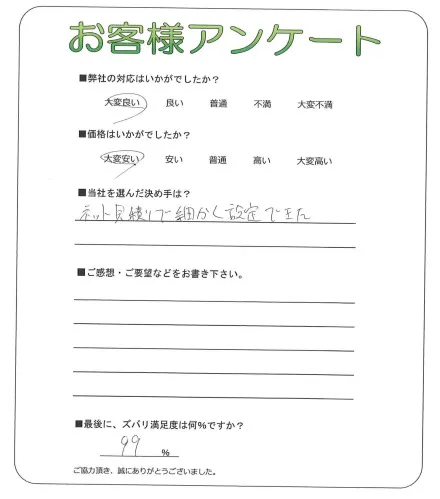 お客様アンケート
■弊社の対応はいかがでしたか？
大変良い 良い 普通 不満 大変不満
■価格はいかがでしたか？
大変安い 安い 普通 高い 大変高い
■当社を選んだ決め手は？
ネット見積りで細かく設定できた
■ご感想・ご要望などをお書き下さい。
■最後に、ズバリ満足度は何%ですか？
99 %
ご協力頂き、誠にありがとうございました。